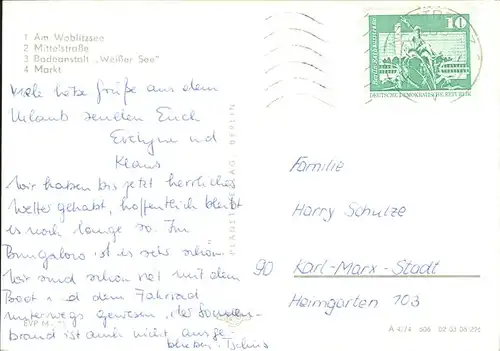 1 Am Woblitzsee
2 Mittelstraße
3 Badeanstalt „Weißer See"
4 Markt
Viele liebe Grüße aus dem
Urlaub senden Euch
Evelyne und
Klaus
Wir haben bis jetzt herrliches
Wetter gehabt, hoffentlich bleibt
es noch lange so. Im
Bungalow ist es sehr schön.
Wir sind schon viel mit dem
Boot und dem Fahrrad
unterwegs gewesen, der Sonnen-
brand ist auch nicht ausge-
blieben. Tschüs
PLANET-VERLAG BERLIN
10
DEUTSCHE DEMOKRATISCHE REPUBLIK
Familie
Harry Schulze
90 Karl-Marx-Stadt
Heimgarten 103
EVP M
A 4/74 608 02 03 06 276